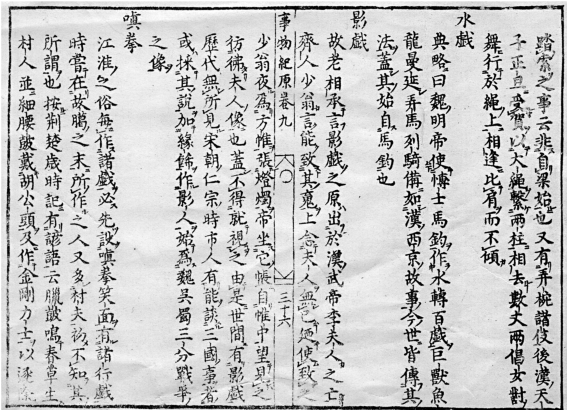 踏索之事云非自梁始也又有弄椀諸伎後漢天
子正旦受賀以大繩繫兩柱相去數丈兩倡女對
舞行於繩上相逢比肩而不傾
水戲
典略曰魏明帝使博士馬鈞作水轉百戲巨獸魚
龍曼延弄馬列騎備如漢西京故事今世皆傳其
法蓋其始自馬鈞也
影戲
故老相承言影戲之原出於漢武帝李夫人之亡
齊人少翁言能致其魂上念夫人無已迺使致之
事物紀原卷九
三十六
少翁夜為方帷張燈燭帝坐它帳自帷中望見之
彷彿夫人像也蓋不得就視之由是世間有影戲
歷代無所見宋朝仁宗時市人有能談三國事者
或採其說加緣飾作影人始為魏吳蜀三分戰爭
之像
嗔拳
江淮之俗每作諸戲必先設嗔拳笑面有諸行戲
時嘗在故臘之末所作之人又多村夫初不知其
所謂也按荊楚歲時記有諺語云臘鼓鳴春草生
村人並細腰鼓戴胡公頭及作金剛力士以逐除